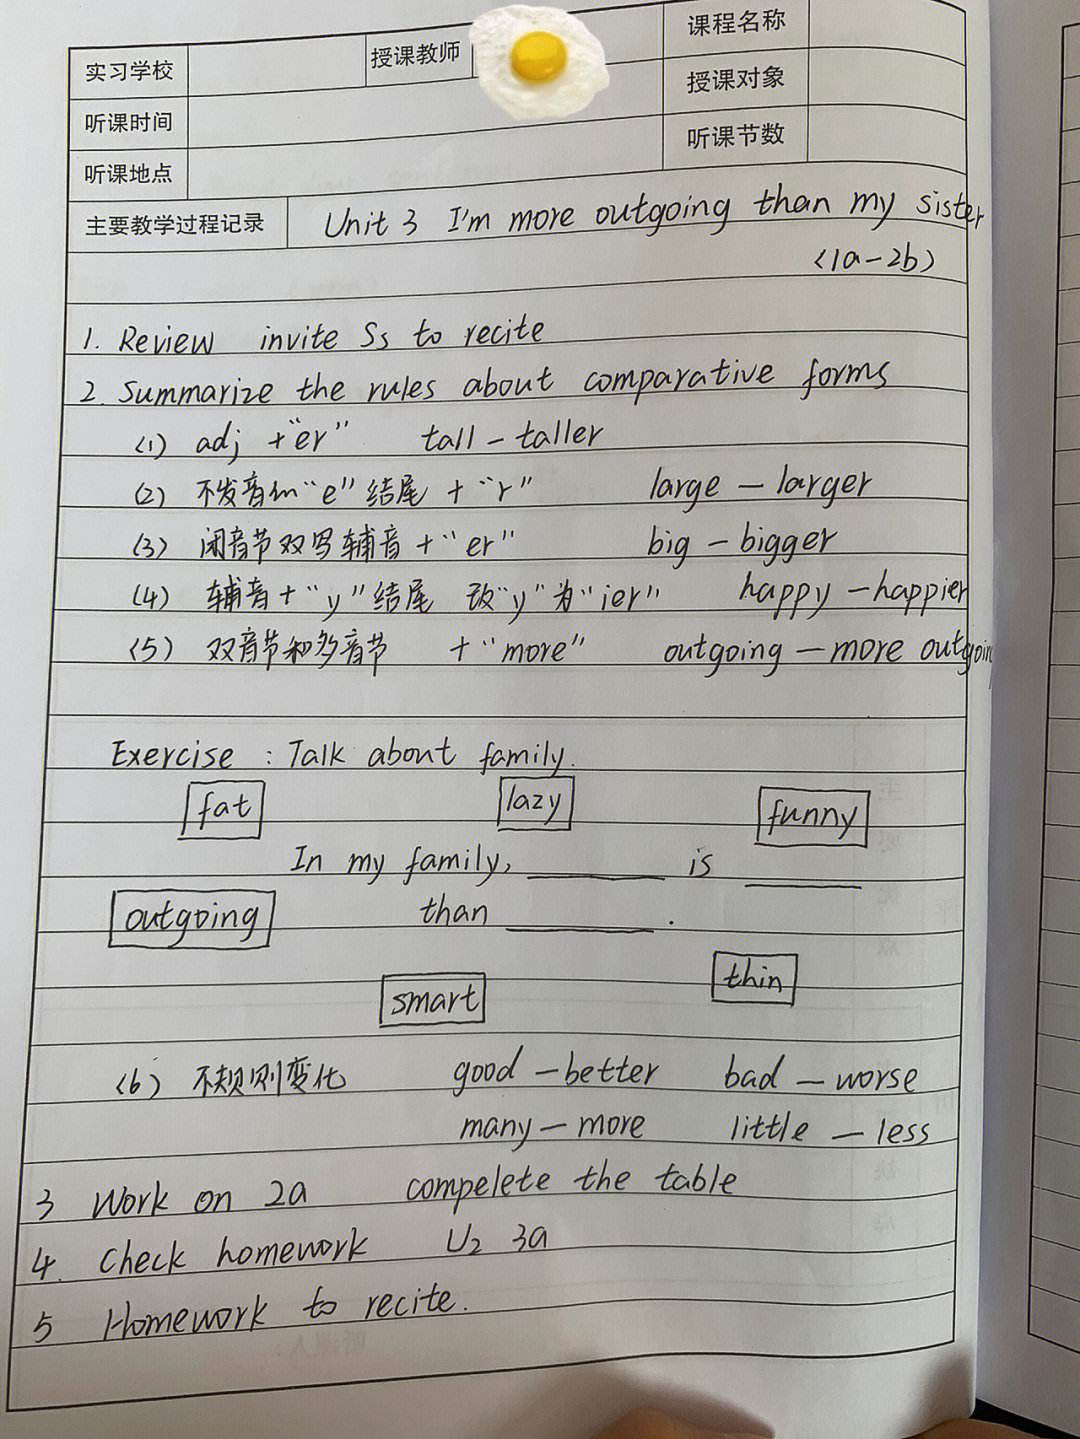 实习学校 授课教师 课程名称
授课对象
听课时间
听课节数
听课地点
主要教学过程记录 Unit 3 I'm more outgoing than my sister
(1a-2b)
1. Review invite Ss to recite
2. Summarize the rules about comparative forms
(1) adj +"er" tall - taller
(2) 不发音的"e"结尾 + "r" large - larger
(3) 闭音节双写辅音 + "er" big - bigger
(4) 辅音+"y"结尾 改"y"为"ier" happy - happier
(5) 双音节和多音节 + "more" outgoing - more outgoing
Exercise : Talk about family.
fat lazy funny
In my family, ______ is ______
outgoing than ______ .
smart thin
(6) 不规则变化 good - better bad - worse
many - more little - less
3 Work on 2a compelete the table
4. Check homework U2 3a
5 Homework to recite.